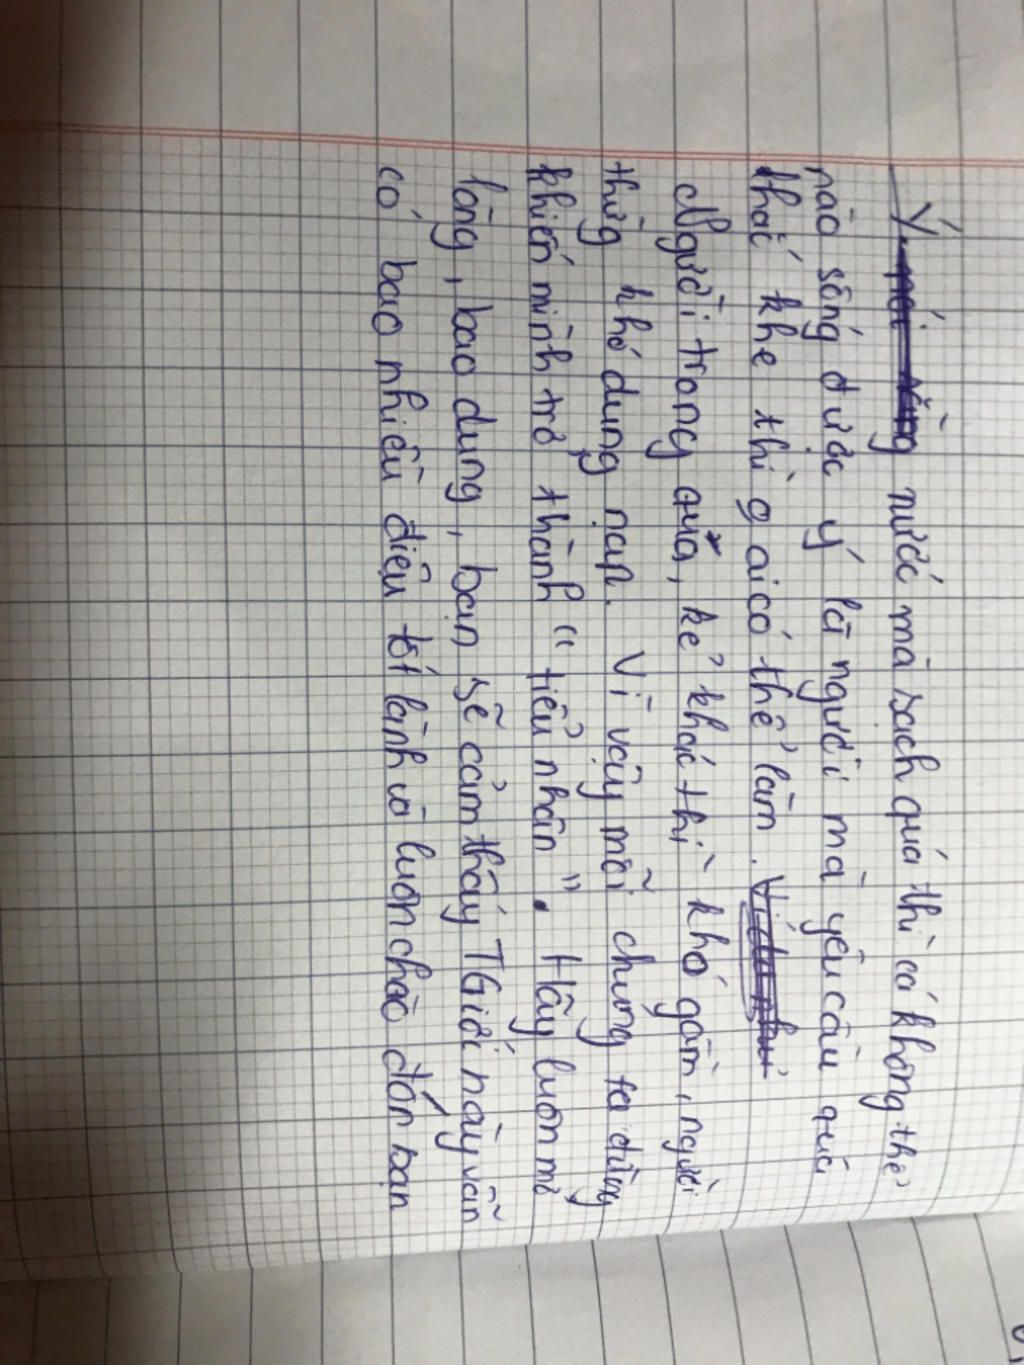 Ý nước mà sạch quá thì cá không thể
nào sống được ý là người mà yêu cầu quá
khắt khe thì g ai có thể làm.
Người trong quá, kẻ khác thì khó gần, người
từng khó dung nạp. Vì vậy mỗi chúng ta đừng
khiến mình trở thành "tiểu nhân". Hãy luôn mở
lòng, bao dung, bạn sẽ cảm thấy TGiới này vẫn
có bao nhiêu điều tốt lành và luôn chào đón bạn